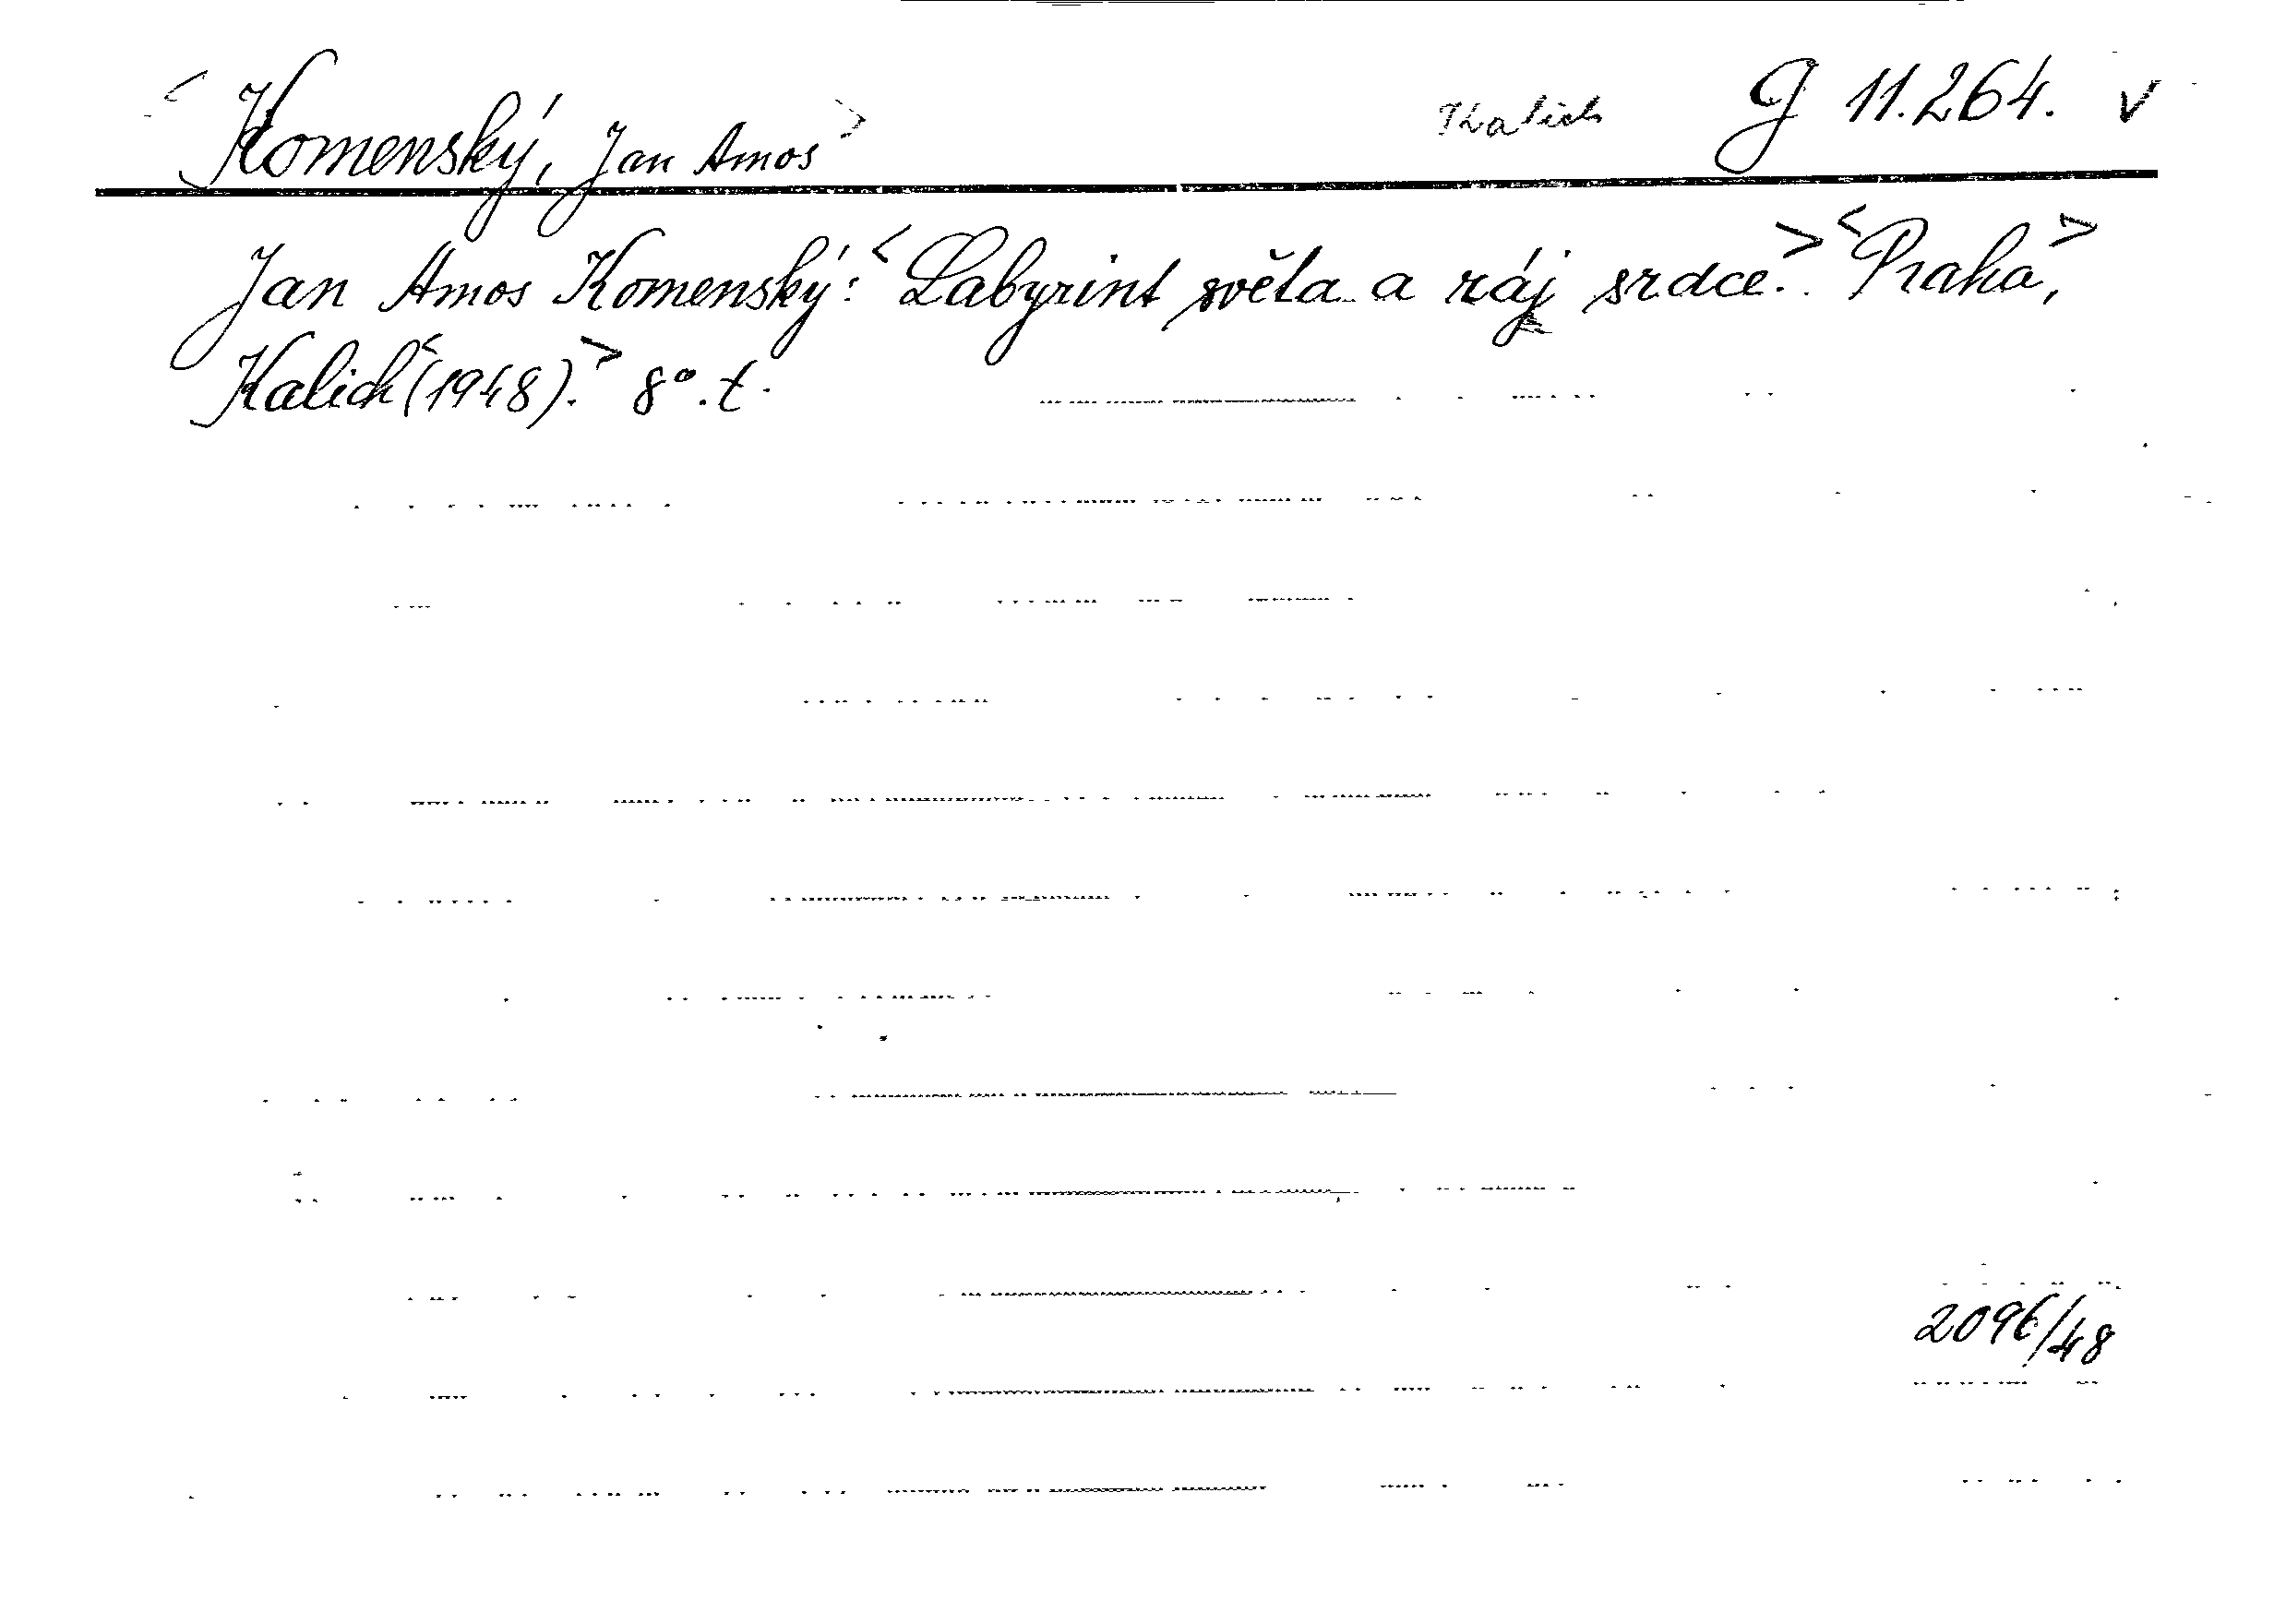 <Komenský, Jan Amos> Kalich G 11.264. v
Jan Amos Komenský: <Labyrint světa a ráj srdce.> <Praha,>
Kalich <(1948).> 8°. t.
2096/48